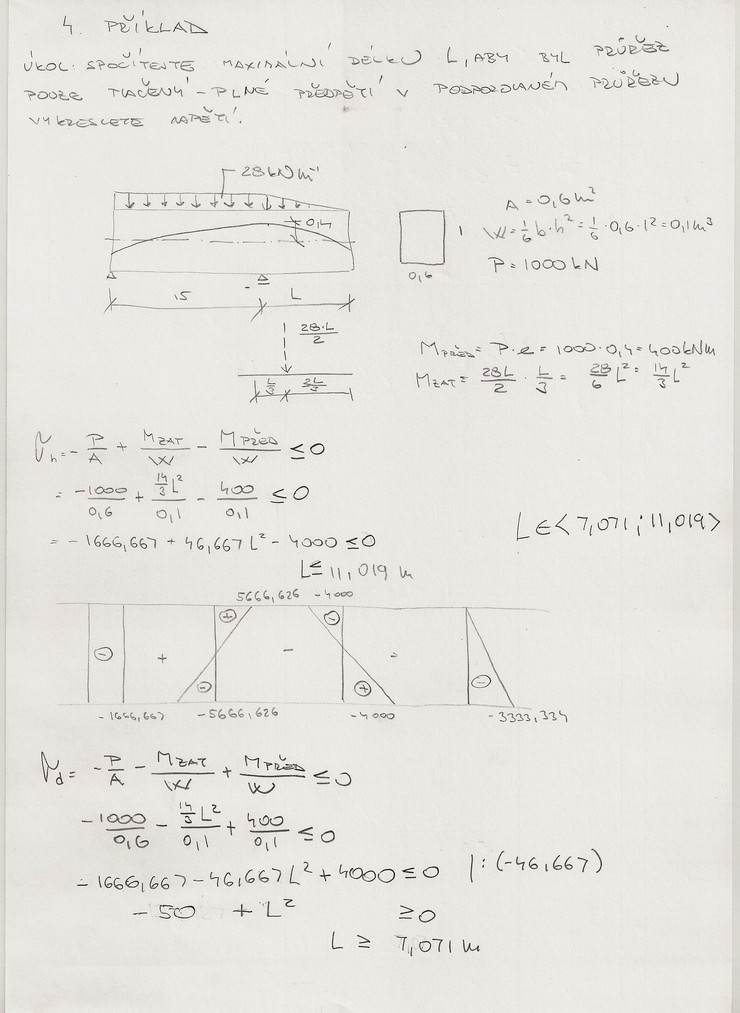 4. PŘÍKLAD
ÚKOL: SPOČÍTEJTE MAXIMÁLNÍ DÉLKU L, ABY BYL PRŮŘEZ
POUZE TLAČENÝ - PLNÉ PŘEDPĚTÍ V PODPOROVANÉM PRŮŘEZU
VYKRESLETE NAPĚTÍ.
28 kN m⁻¹
0,4
15
L
1
0,6
A = 0,6 m²
W = 1/6 b·h² = 1/6 · 0,6 · 1² = 0,1 m³
P = 1000 kN
28·L/2
L/3 2L/3
M PŘED = P·e = 1000·0,4 = 400 kNm
M ZAT = 28L/2 · L/3 = 28/6 L² = 14/3 L²
σh = - P/A + M ZAT/W - M PŘED/W ≤ 0
= -1000/0,6 + 14/3 L²/0,1 - 400/0,1 ≤ 0
= - 1666,667 + 46,667 L² - 4000 ≤ 0
L ≤ 11,019 m
L ∈ < 7,071 ; 11,019 >
5666,626 -4000
⊖ + ⊕ ⊖ - ⊖ ⊕ = ⊖
-1666,667 -5666,626 -4000 -3333,334
σd = - P/A - M ZAT/W + M PŘED/W ≤ 0
-1000/0,6 - 14/3 L²/0,1 + 400/0,1 ≤ 0
- 1666,667 - 46,667 L² + 4000 ≤ 0 / : (-46,667)
- 50 + L² ≥ 0
L ≥ 7,071 m